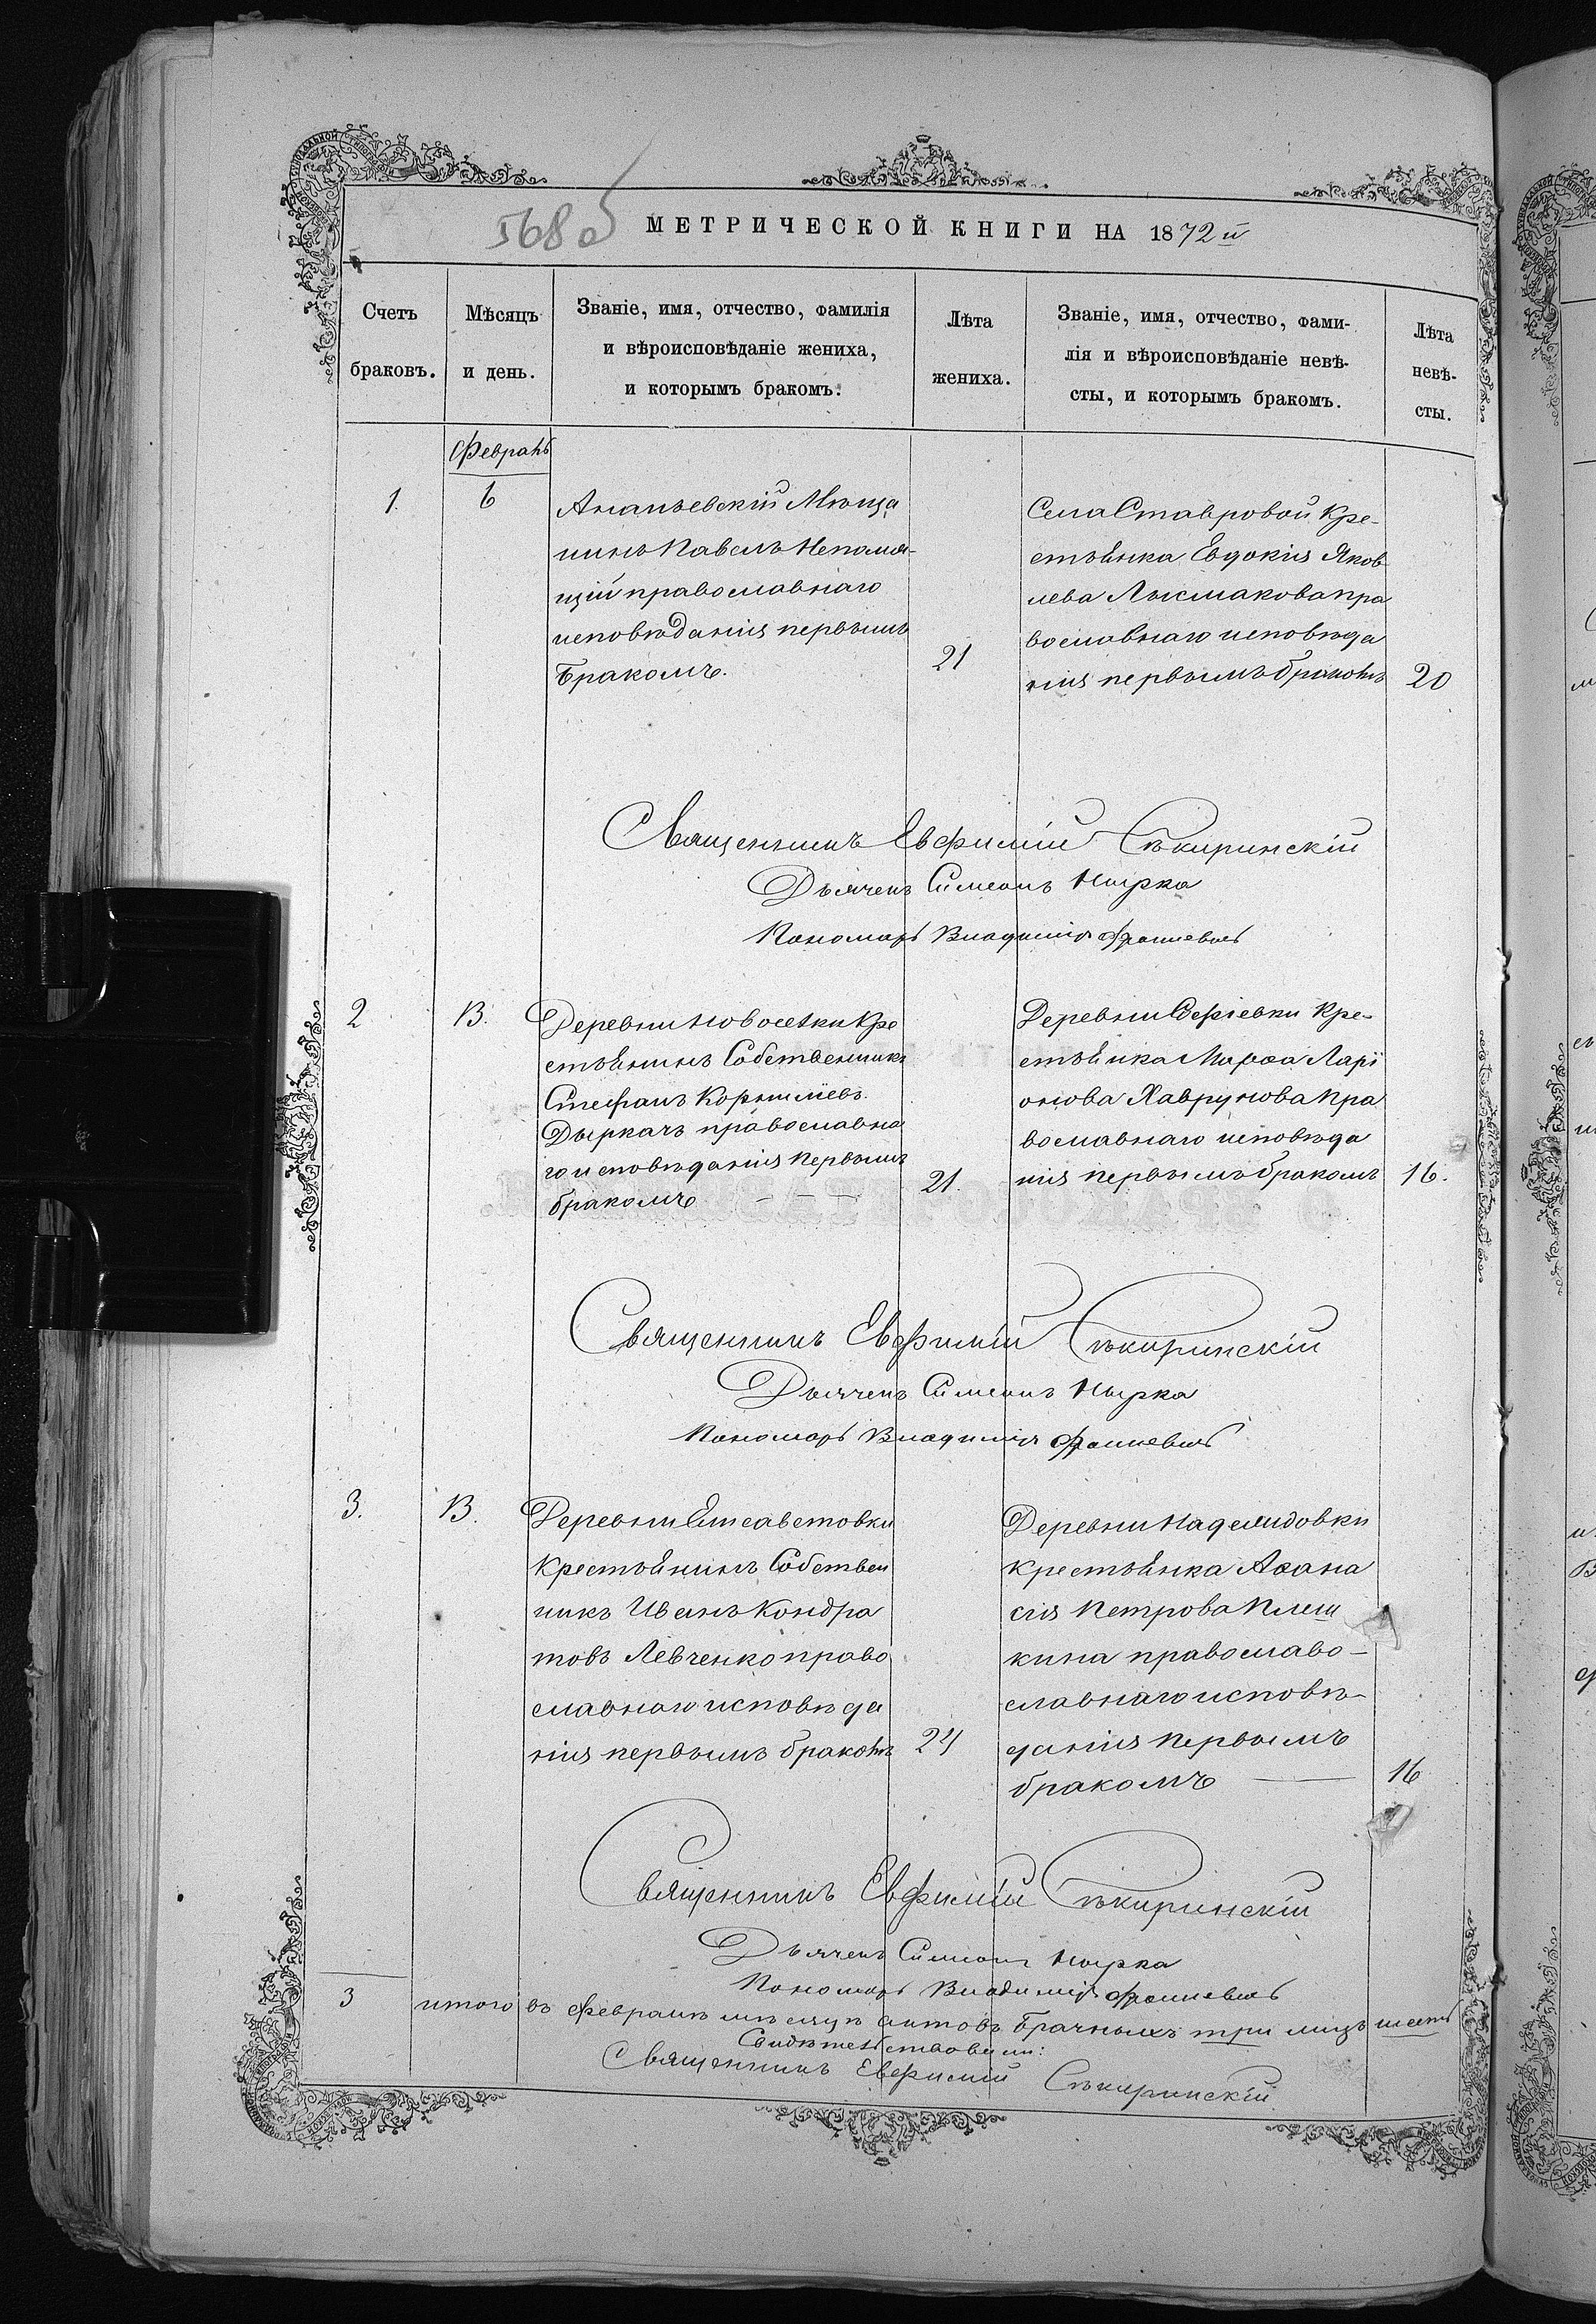 568 об
МЕТРИЧЕСКОЙ КНИГИ НА 1872 й
Счетъ браковъ.
Мѣсяцъ и день.
Званіе, имя, отчество, фамилія и вѣроисповѣданіе жениха, и которымъ бракомъ.
Лѣта жениха.
Званіе, имя, отчество, фами-лія и вѣроисповѣданіе невѣ-сты, и которымъ бракомъ.
Лѣта невѣ-сты.
Февраль
1.
6
Ананьевскій Мѣща
нинъ Павелъ Непомня-
щій православнаго
исповѣданія первымъ
бракомъ.
21
Села Ставровой Кре-
стьянка Евдокія Яков
лева пра
вославнаго исповѣда
нія первымъ бракомъ
20
Священникъ Евфимій Сѣкиринскій
Дьячекъ Симеонъ Нырка
Пономарь Владиміръ
2
13.
Деревни Новоселки Кре
стьянинъ Собственникъ
Стефанъ Корниліевъ
Дыркачъ православна
го исповѣданія первымъ
бракомъ
21.
Деревни Кре-
стьянка Марѳа Ларі
онова Хаврунова пра
вославнаго исповѣда
нія первымъ бракомъ
16.
Священникъ Евфимій Сѣкиринскій
Дьячекъ Симеонъ Нырка
Пономарь Владиміръ
3.
13.
Деревни Елисаветовки
Крестьянинъ Собствен
никъ Иванъ Кондра
товъ Левченко право
славнаго исповѣда
нія первымъ бракомъ
24
Деревни
крестьянка Аѳана
сія Петрова Плеш
кина православо-
славнаго исповѣ-
данія первымъ
бракомъ
16
Священникъ Евфимій Сѣкиринскій
Дьячекъ Симеонъ Нырка
Пономарь Владиміръ
3 итого въ февралѣ мѣсяцѣ актовъ брачныхъ три лицъ шесть
Свидѣтельствовали:
Священникъ Евфимій Сѣкиринскій